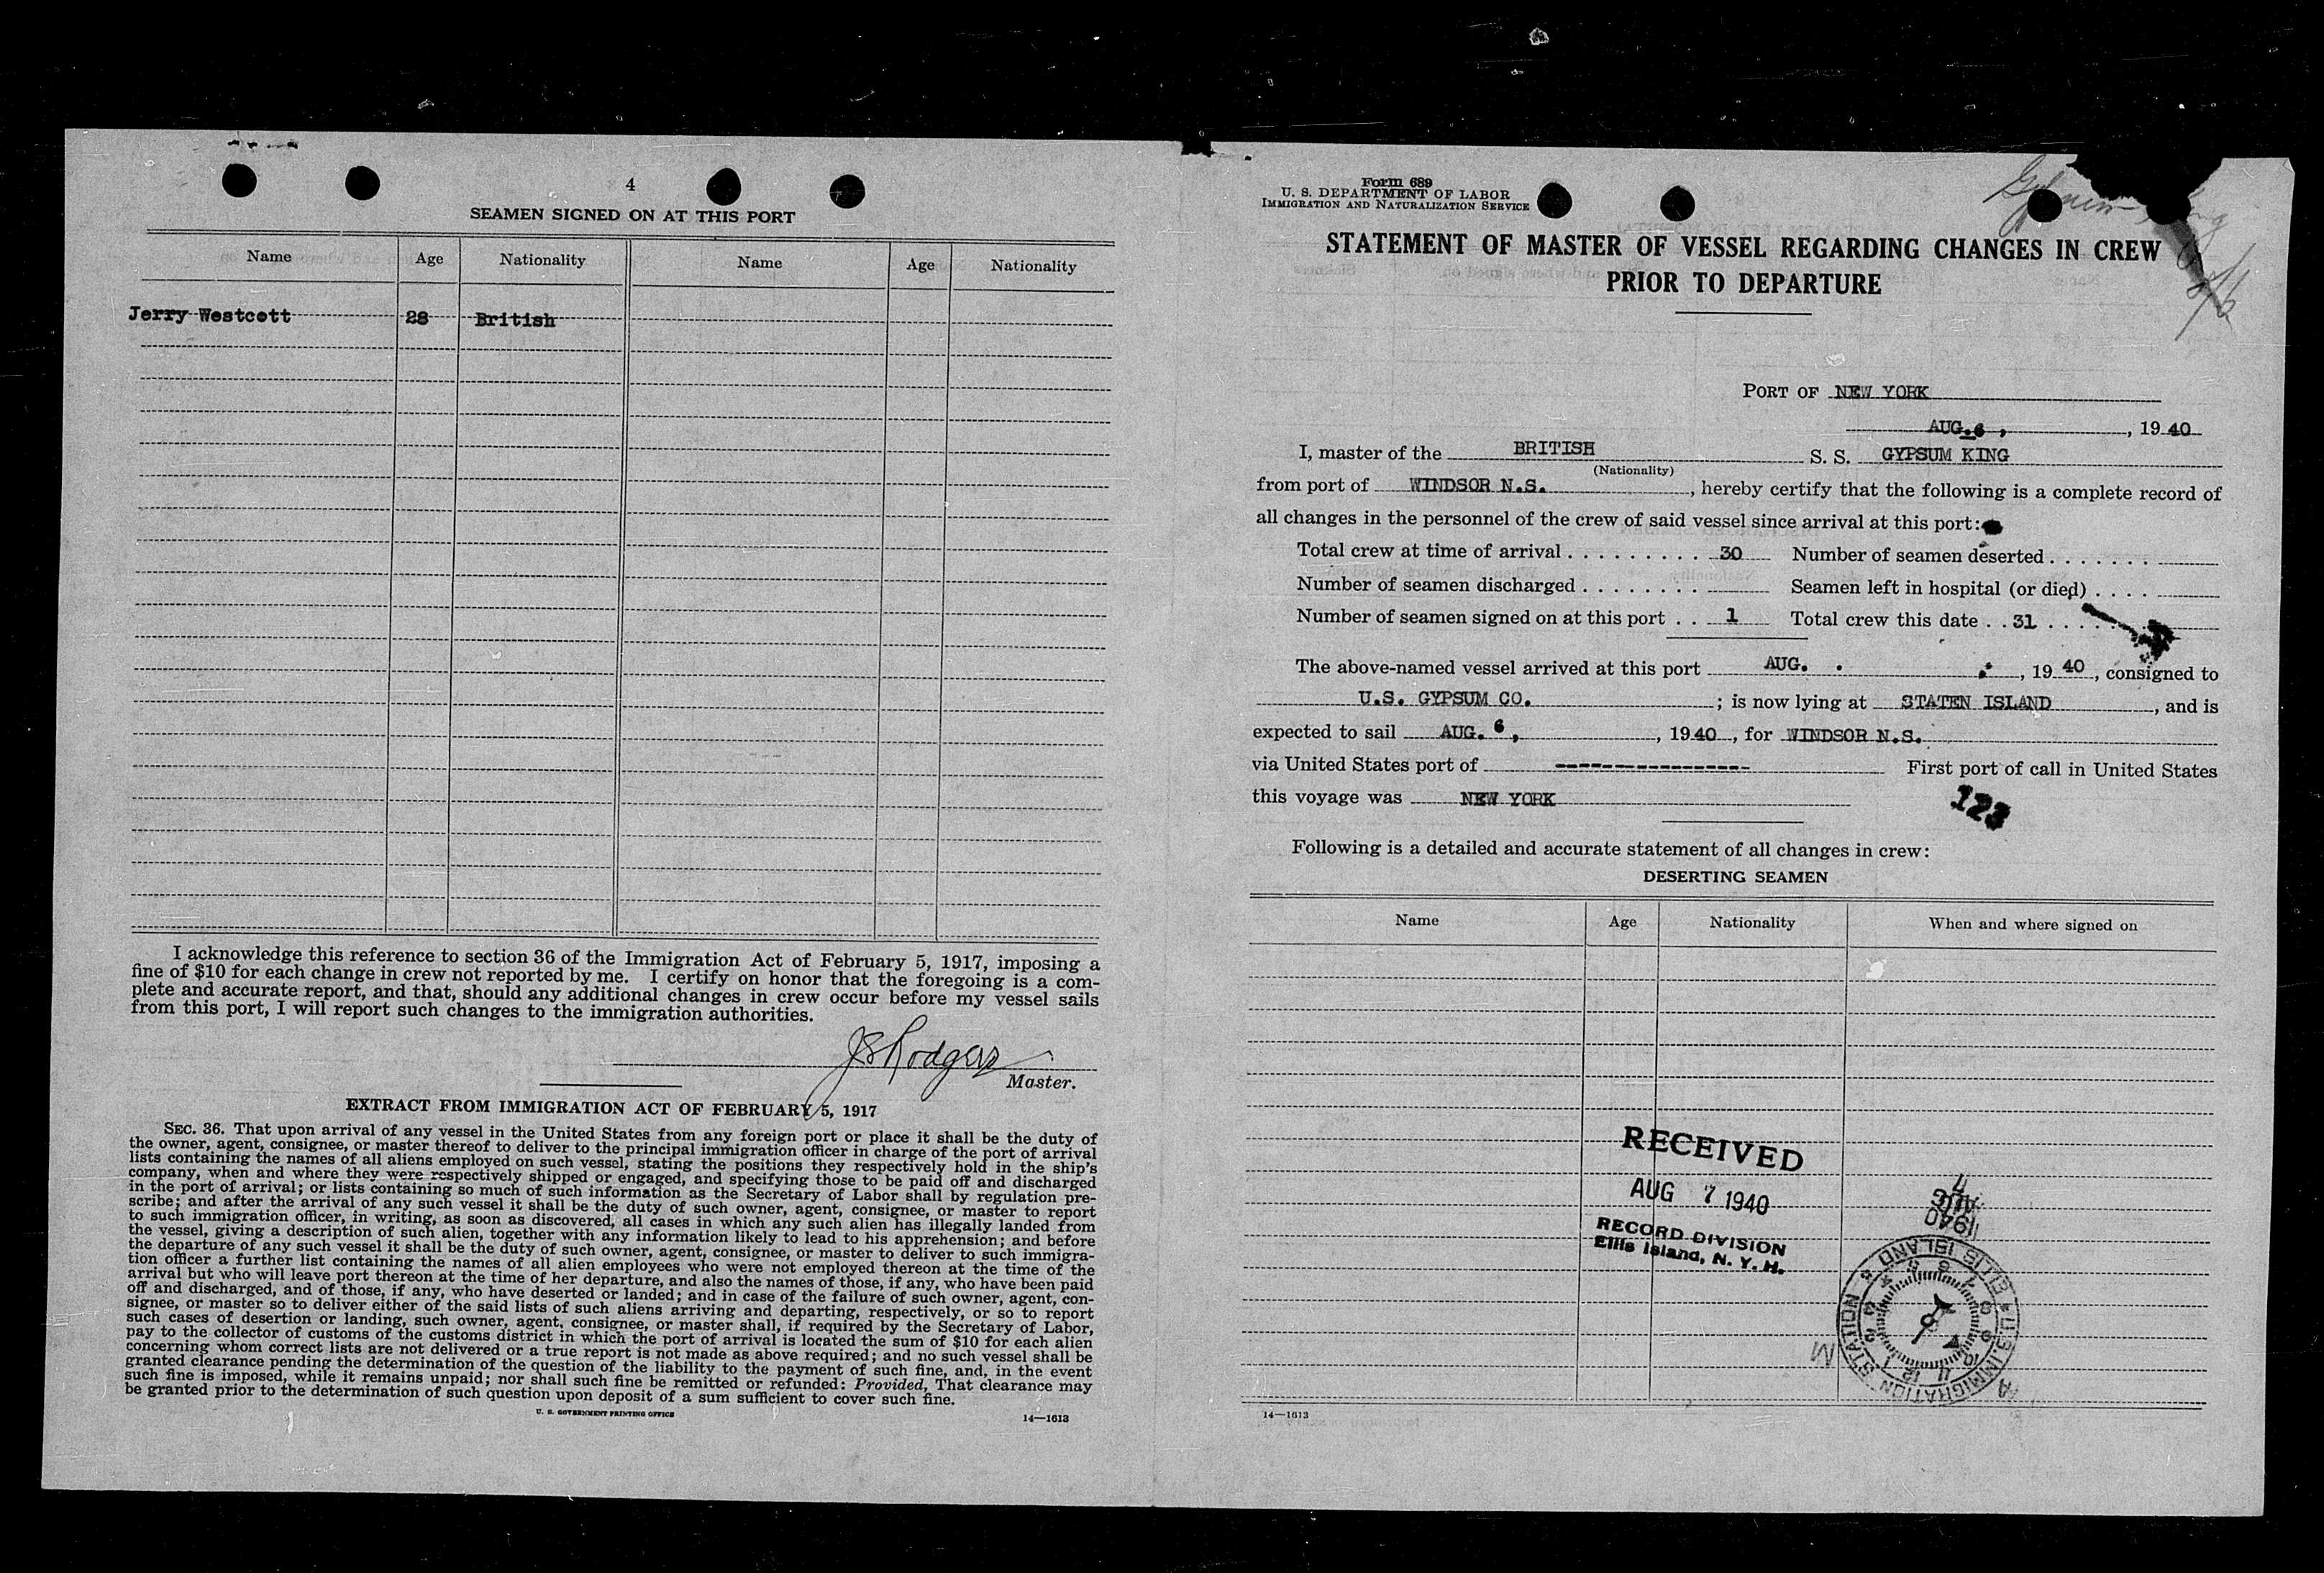 4
SEAMEN SIGNED ON AT THIS PORT
Name Age Nationality Name Age Nationality
Jerry Westcott 28 British
I acknowledge this reference to section 36 of the Immigration Act of February 5, 1917, imposing a
fine of $10 for each change in crew not reported by me. I certify on honor that the foregoing is a com-
plete and accurate report, and that, should any additional changes in crew occur before my vessel sails
from this port, I will report such changes to the immigration authorities.
JS Rodgers
Master.
EXTRACT FROM IMMIGRATION ACT OF FEBRUARY 5, 1917
SEC. 36. That upon arrival of any vessel in the United States from any foreign port or place it shall be the duty of
the owner, agent, consignee, or master thereof to deliver to the principal immigration officer in charge of the port of arrival
lists containing the names of all aliens employed on such vessel, stating the positions they respectively hold in the ship's
company, when and where they were respectively shipped or engaged, and specifying those to be paid off and discharged
in the port of arrival; or lists containing so much of such information as the Secretary of Labor shall by regulation pre-
scribe; and after the arrival of any such vessel it shall be the duty of such owner, agent, consignee, or master to report
to such immigration officer, in writing, as soon as discovered, all cases in which any such alien has illegally landed from
the vessel, giving a description of such alien, together with any information likely to lead to his apprehension; and before
the departure of any such vessel it shall be the duty of such owner, agent, consignee, or master to deliver to such immigra-
tion officer a further list containing the names of all alien employees who were not employed thereon at the time of the
arrival but who will leave port thereon at the time of her departure, and also the names of those, if any, who have been paid
off and discharged, and of those, if any, who have deserted or landed; and in case of the failure of such owner, agent, con-
signee, or master so to deliver either of the said lists of such aliens arriving and departing, respectively, or so to report
such cases of desertion or landing, such owner, agent, consignee, or master shall, if required by the Secretary of Labor,
pay to the collector of customs of the customs district in which the port of arrival is located the sum of $10 for each alien
concerning whom correct lists are not delivered or a true report is not made as above required; and no such vessel shall be
granted clearance pending the determination of the question of the liability to the payment of such fine, and, in the event
such fine is imposed, while it remains unpaid; nor shall such fine be remitted or refunded: Provided, That clearance may
be granted prior to the determination of such question upon deposit of a sum sufficient to cover such fine.
U. S. GOVERNMENT PRINTING OFFICE 14—1613
Form 689
U. S. DEPARTMENT OF LABOR
IMMIGRATION AND NATURALIZATION SERVICE
STATEMENT OF MASTER OF VESSEL REGARDING CHANGES IN CREW
PRIOR TO DEPARTURE
PORT OF NEW YORK
AUG. 6, , 1940
I, master of the BRITISH S. S. GYPSUM KING
(Nationality)
from port of WINDSOR N.S. , hereby certify that the following is a complete record of
all changes in the personnel of the crew of said vessel since arrival at this port:
Total crew at time of arrival . . . . . . . . . 30 Number of seamen deserted . . . . . . .
Number of seamen discharged . . . . . . . . Seamen left in hospital (or died) . . . .
Number of seamen signed on at this port . . 1 Total crew this date . . 31 . . . .
The above-named vessel arrived at this port AUG. , 1940, consigned to
U.S. GYPSUM CO. ; is now lying at STATEN ISLAND , and is
expected to sail AUG. 6, , 1940, for WINDSOR N.S.
via United States port of ----------------- First port of call in United States
this voyage was NEW YORK
123
Following is a detailed and accurate statement of all changes in crew:
DESERTING SEAMEN
Name Age Nationality When and where signed on
RECEIVED
AUG 7 1940
RECORD DIVISION
Ellis Island, N. Y. H.
7
AUG
1940
U.S. IMMIGRATION STATION ELLIS ISLAND
1 2 3 4 5 6 7 8 9 10 11 12
14—1613